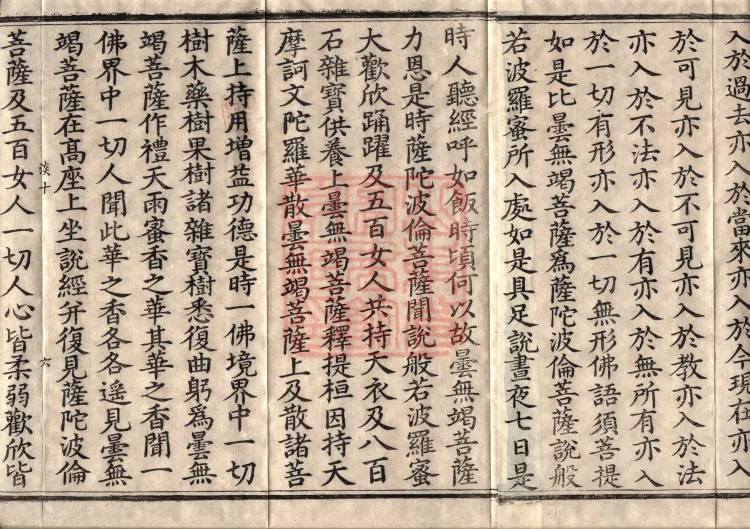 入於過去亦入於當來亦入於今現在亦入
於可見亦入於不可見亦入於教亦入於法
亦入於不法亦入於有亦入於無所有亦入
於一切有形亦入於一切無形佛語須菩提
如是比曇無竭菩薩爲薩陀波倫菩薩說般
若波羅蜜所入處如是具足說晝夜七日是
時人聽經呼如飯時頃何以故曇無竭菩薩
力恩是時薩陀波倫菩薩聞說般若波羅蜜
大歡欣踊躍及五百女人共持天衣及八百
石雜寶供養上曇無竭菩薩釋提桓因持天
摩訶文陀羅華散曇無竭菩薩上及散諸菩
薩上持用增益功德是時一佛境界中一切
樹木藥樹果樹諸雜寶樹悉復曲躬爲曇無
竭菩薩作禮天雨蜜香之華其華之香聞一
佛界中一切人聞此華之香各各遥見曇無
竭菩薩在高座上坐說經并復見薩陀波倫
淡十 六
菩薩及五百女人一切人心皆柔弱歡欣皆